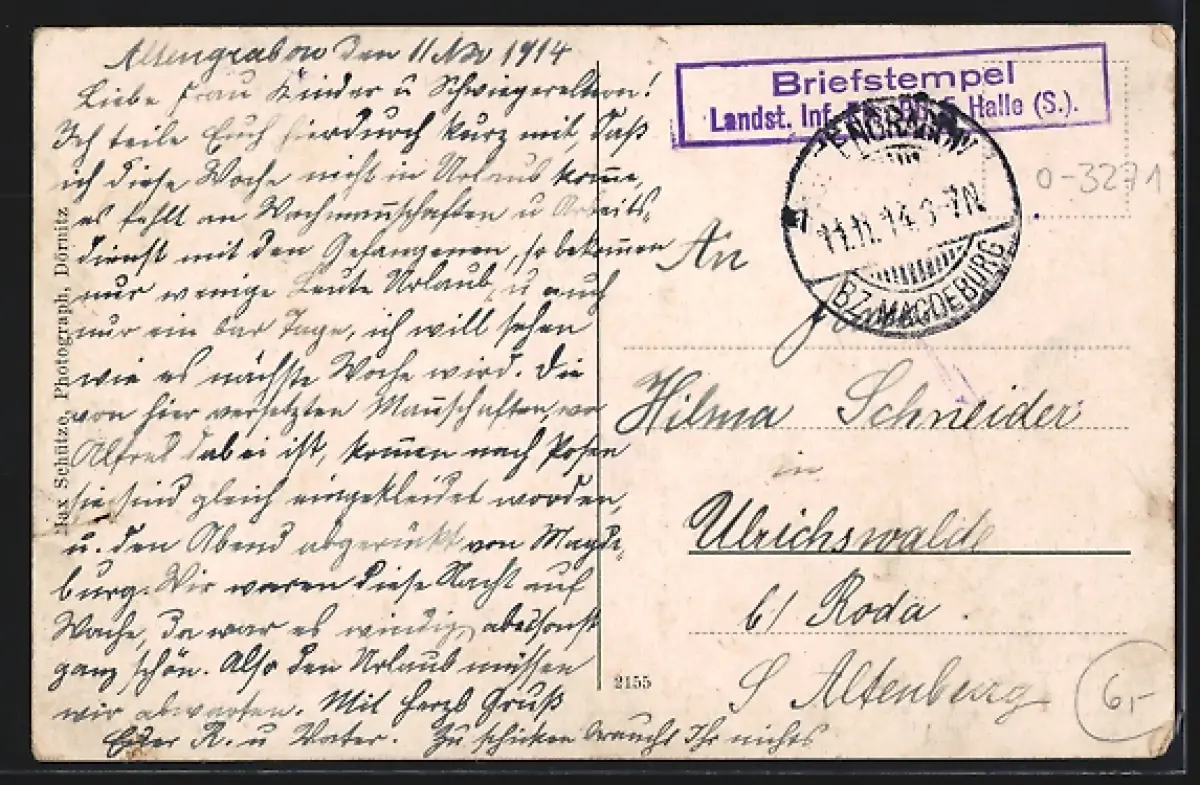 Altengrabow den 11 Nov 1914
Liebe Frau Kinder u Schwiegereltern!
Ich teile Euch hierdurch kurz mit, daß
ich diese Woche nicht in Urlaub komme,
es fehlt an Wachmannschaften u Arbeits-
dienst mit den Gefangenen, so bekommen
nur wenige Leute Urlaub, u auch
nur ein bar Tage, ich will sehen
wie es nächste Woche wird. Die
von hier versetzten Mannschaften wo
Alfred dabei ist, kommen nach Posen
sie sind gleich eingekleidet worden,
u. den Abend abgerückt von Magde-
burg. Wir waren diese Nacht auf
Wache, da war es windig, aber sonst
ganz schön. Also den Urlaub müssen
wir abwarten. Mit herzl Gruß
Euer R. u Vater. Zu schicken braucht Ihr nichts
Max Schütze, Photograph, Dörnitz
2155
Briefstempel
Landst. Inf. Halle (S.).
11.11.14. 7N
BZ. MAGDEBURG
0-3271
An
Hilma Schneider
in
Ulrichswalde
b/ Roda.
S Altenburg
6,-